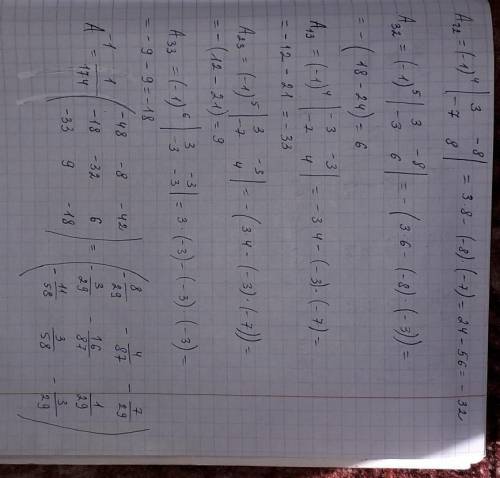 A₂₂ = (-1)⁴ | 3 -8 ; -7 8 | = 3·8 - (-8)·(-7) = 24 - 56 = -32
A₃₂ = (-1)⁵ | 3 -8 ; -3 6 | = - (3·6 - (-8)·(-3)) =
= - (18 - 24) = 6
A₁₃ = (-1)⁴ | -3 -3 ; -7 4 | = -3·4 - (-3)·(-7) =
= -12 - 21 = -33
A₂₃ = (-1)⁵ | 3 -3 ; -7 4 | = - (3·4 - (-3)·(-7)) =
= - (12 - 21) = 9
A₃₃ = (-1)⁶ | 3 -3 ; -3 -3 | = 3·(-3) - (-3)·(-3) =
= -9 - 9 = -18
A⁻¹ = 1/174 ( -48 -8 -42 ; -18 -32 6 ; -33 9 -18 ) = ( -8/29 -4/87 -7/29 ; -3/29 -16/87 1/29 ; -11/58 3/58 -3/29 )